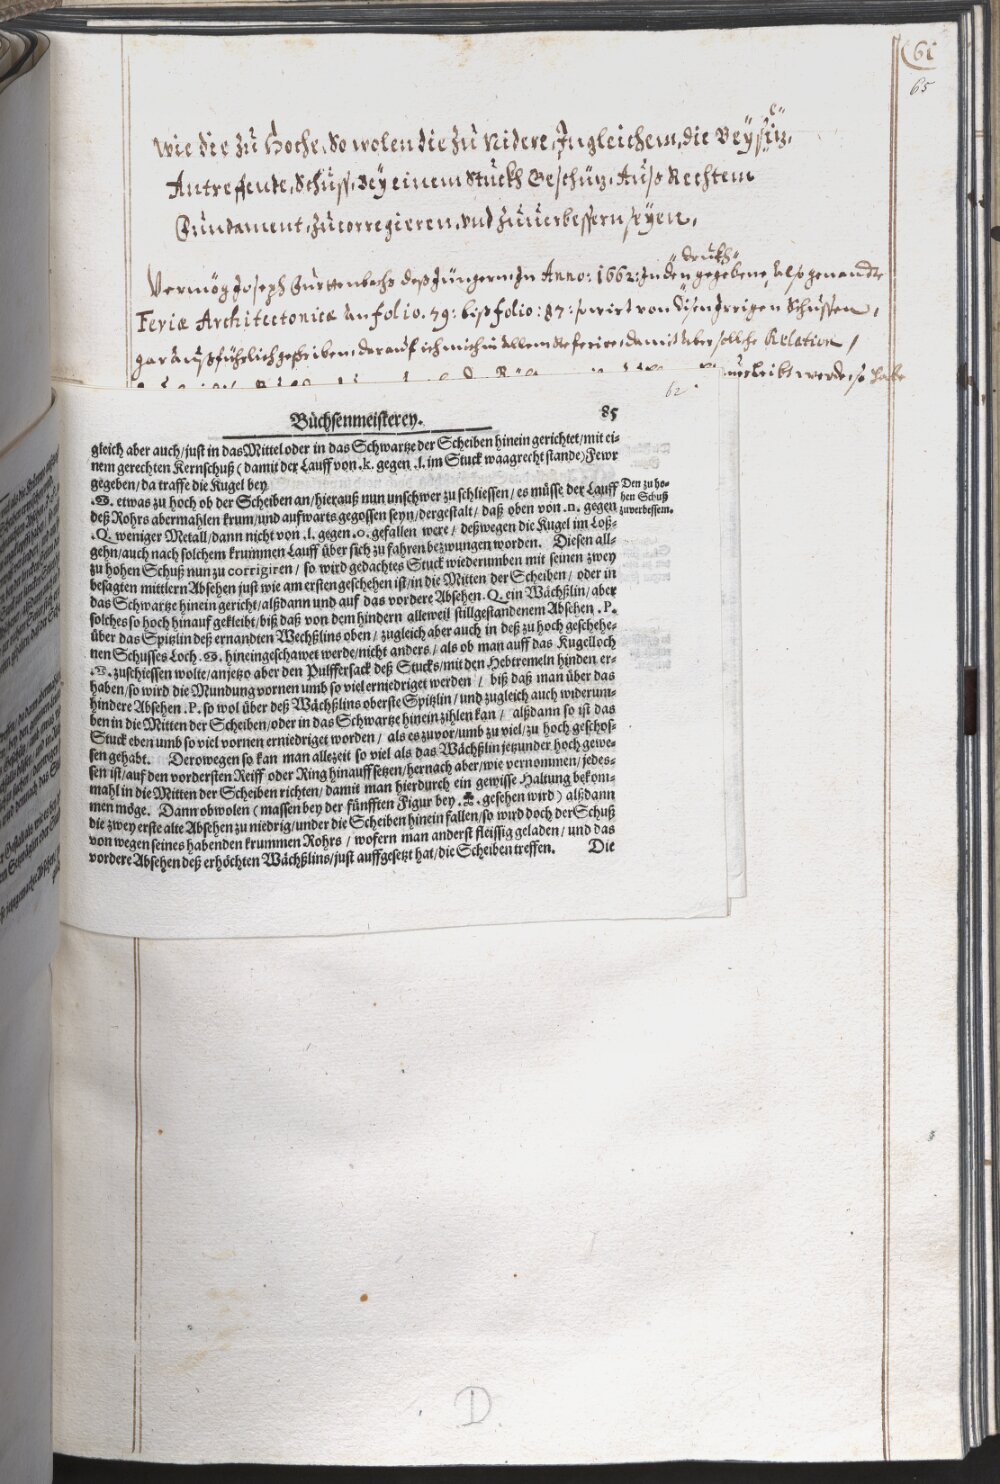 (61
65
Wie die zu Hoche, So wolen die zu Nidere, Ingleichem, die Beysitz,
Antreffende, Schüss, Bey einem Stuckh Geschüz, Auss Rechtem
Fundament, zu corregieren, und zuuerbessern seyen,
Vermög Joseph Furttenbachs dess Jüngern, In Anno: 1662: In den druckh gegebene, also genandte
Feriæ Architectonicæ an folio. 79: biss folio: 87: so wirt von disen Irrigen Schüssen,
gar aussführlich geschriben, darauf ich mich in allem Referire, damit aber sollche Relation,
62
Büchsenmeisterey. 85
gleich aber auch/just in das Mittel oder in das Schwartze der Scheiben hinein gerichtet/mit ei-
nem gerechten Kernschuß (damit der Lauff von .k. gegen .l. im Stuck waagrecht stande) Fewr
gegeben/da traffe die Kugel bey
.M. etwas zu hoch ob der Scheiben an/hierauß nun unschwer zu schliessen/es müsse der Lauff
deß Rohrs abermahlen krum/und auffwarts gegossen seyn/dergestalt/daß oben von .n. gegen
.Q. weniger Metall/dann nicht von .l. gegen .o. gefallen were/deßwegen die Kugel im Loß-
gehn/auch nach solchem krummen Lauff über sich zu fahren bezwungen worden. Diesen all-
zu hohen Schuß nun zu corrigiren/so wird gedachtes Stuck wiederumben mit seinen zwey
besagten mittlern Absehen just wie am ersten geschehen ist/in die Mitten der Scheiben/oder in
das Schwartze hinein gericht/alßdann und auf das vordere Absehen. Q. ein Wächßlin/aber
solches so hoch hinauf gekleibt/biß daß von dem hindern alleweil stillgestandenem Absehen .P.
über das Spitzlin deß ernandten Wechßlins oben/zugleich aber auch in deß zu hoch geschehe-
nen Schusses Loch .M. hineingeschawet werde/nicht anders/als ob man auff das Kugelloch
.M. zuschiessen wolte/anjetzo aber den Pulffersack deß Stucks/mit den Hebtremeln hinden er-
haben/so wird die Mundung vornen umb so viel erniedriget werden/biß daß man über das
hindere Absehen .P. so wol über deß Wächßlins oberste Spitzlin/und zugleich auch widerum-
ben in die Mitten der Scheiben/oder in das Schwartze hinein zihlen kan/alßdann so ist das
Stuck eben umb so viel vornen erniedriget worden/als es zuvor/umb zu viel/zu hoch geschos-
sen gehabt. Derowegen so kan man allezeit so viel als das Wächßlin jetzunder hoch gewe-
sen ist/auf den vordersten Reiff oder Ring hinauff setzen/hernach aber/wie vernommen/jedes-
mahl in die Mitten der Scheiben richten/damit man hierdurch ein gewisse Haltung bekom-
men möge. Dann obwolen (massen bey der fünfften Figur bey .♣. gesehen wird) alßdann
die zwey erste alte Absehen zu niedrig/under die Scheiben hinein fallen/so wird doch der Schuß
von wegen seines habenden krummen Rohrs/wofern man anderst fleissig geladen/und das
vordere Absehen deß erhöchten Wächßlins/just auffgesetzt hat/die Scheiben treffen. Die
Den zu ho-
hen Schuß
zuverbessern.
D